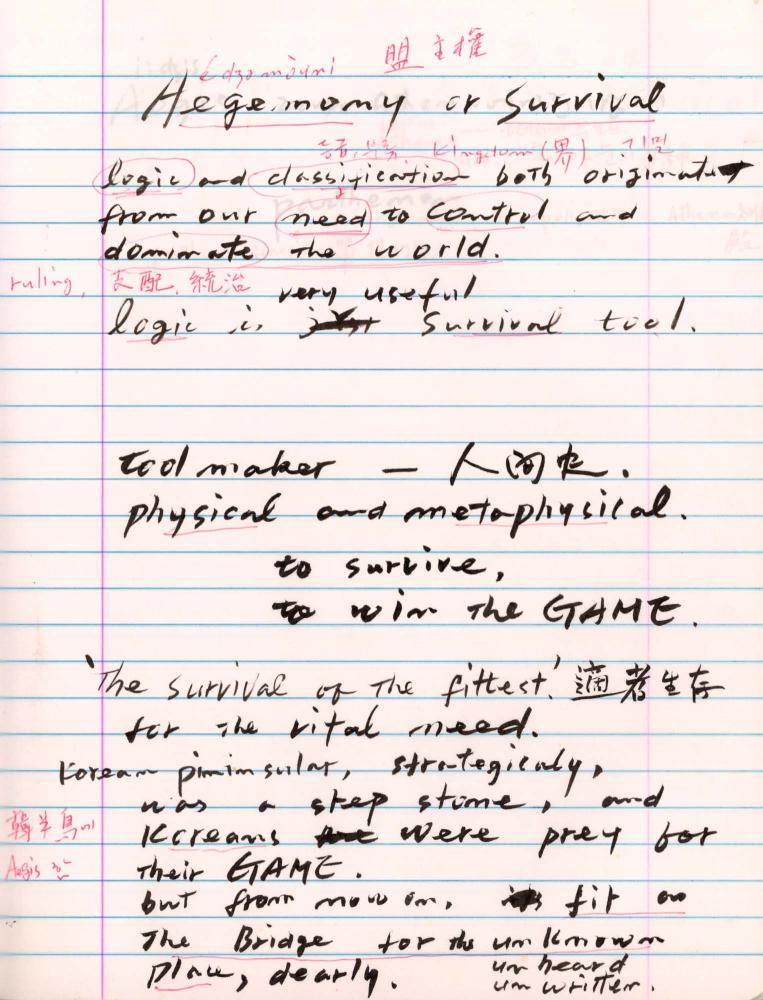 盟主權
Hegemony or Survival
Kingdom (界)
logic and classification both originate
from our need to control and
dominate the world.
ruling, 支配, 統治
very useful
logic is survival tool.
tool maker — 人间
physical and metaphysical.
to survive,
to win the GAME.
'The survival of the fittest.' 適者生存
for the vital need.
Korean pininsular, strategicaly,
was a step stone, and
Koreans were prey for
their GAME.
but from now on, fit on
The Bridge for the unknown
Place, dearly. unheard
unwritten.
韓半島에
Aegis 한